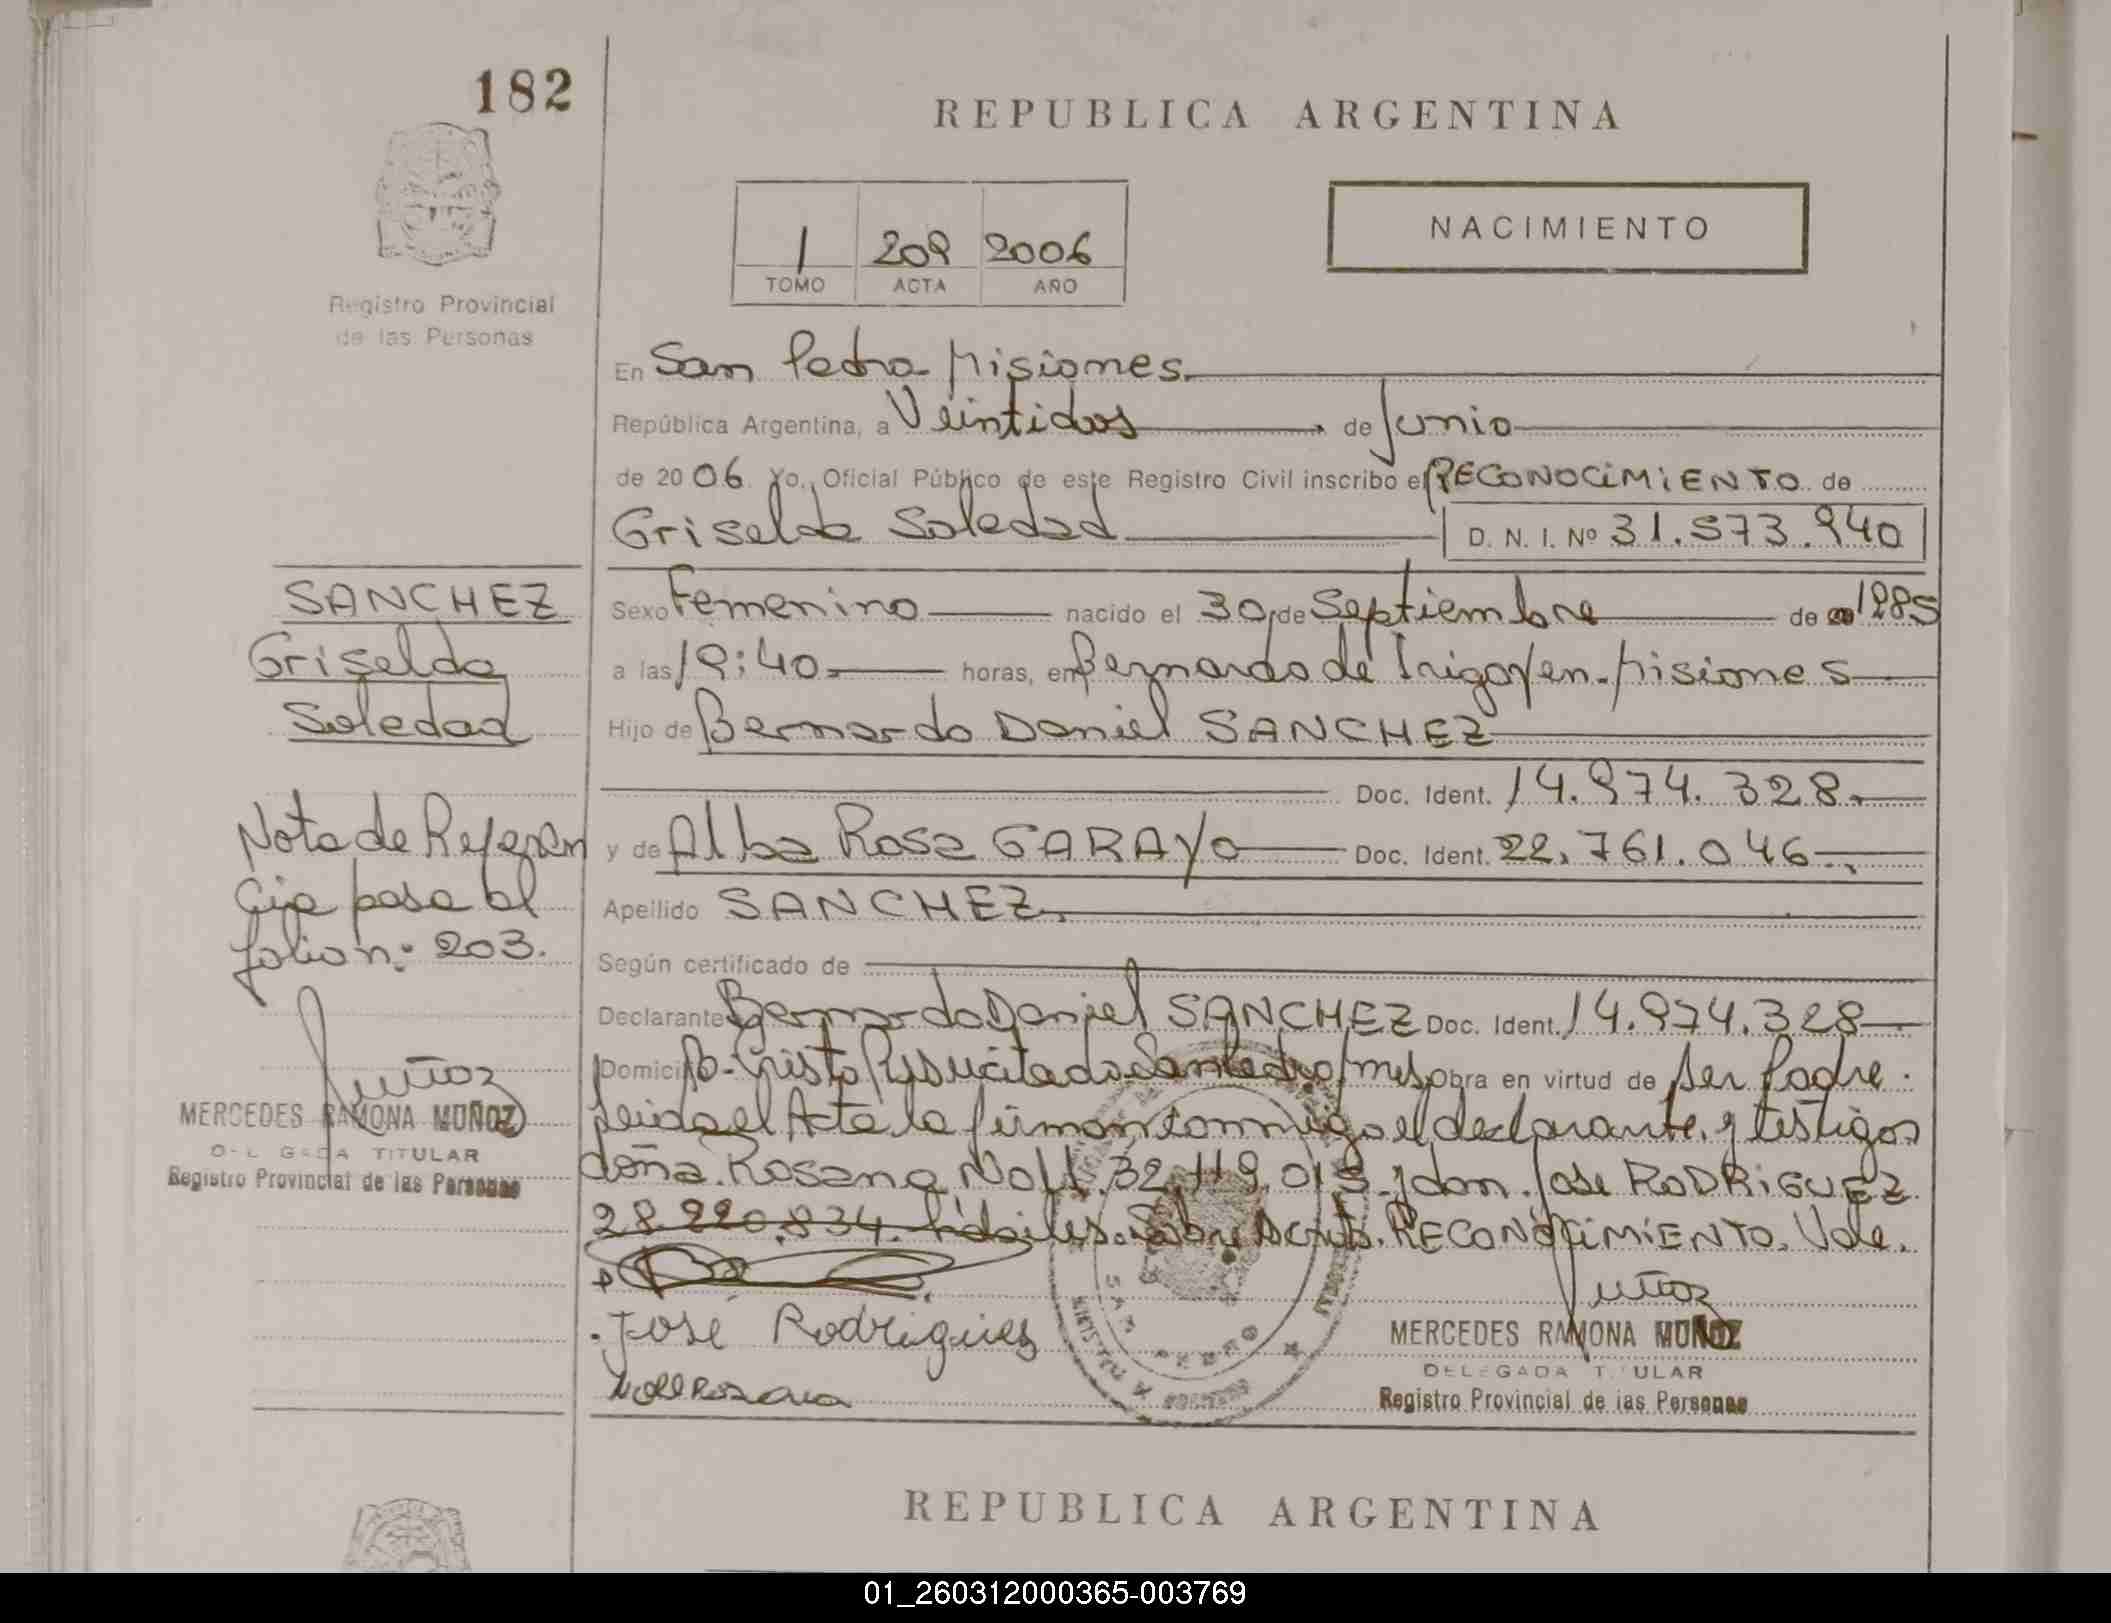 182
REPUBLICA ARGENTINA
NACIMIENTO
1 209 2006
TOMO ACTA AÑO
Registro Provincial
de las Personas
En San Pedro Misiones.
República Argentina, a Veintidos de Junio
de 2006. Yo, Oficial Público de este Registro Civil inscribo el RECONOCIMIENTO de
Griselda Soledad D. N. I. Nº 31.573.940
SANCHEZ
Griselda
Soledad
Sexo Femenino nacido el 30 de Septiembre de 1985
a las 19:40 horas, en Bernardo de Irigoyen - Misiones
Hijo de Bernardo Daniel SANCHEZ
Doc. Ident. 14.974.328.
y de Alba Rosa GARAYO Doc. Ident. 22.761.046.
Apellido SANCHEZ.
Según certificado de
Nota de Referen
cia pasa al
folio n: 203.
Muñoz
MERCEDES RAMONA MUÑOZ
DELEGADA TITULAR
Registro Provincial de las Personas
Declarante Bernardo Daniel SANCHEZ Doc. Ident. 14.974.328
Domicilio Bº Cristo Resucitado San Pedro Mnes obra en virtud de ser Padre.
Leida el Acta la firman conmigo el declarante, y testigos
doña Rosana Noll. 32.119.013. y don José RODRIGUEZ
28.220.834. hábiles. Sobre Escrito. RECONOCIMIENTO. Vale.
José Rodriguez
Noll Rosana
Muñoz
MERCEDES RAMONA MUÑOZ
DELEGADA TITULAR
Registro Provincial de las Personas
REPUBLICA ARGENTINA
01_260312000365-003769